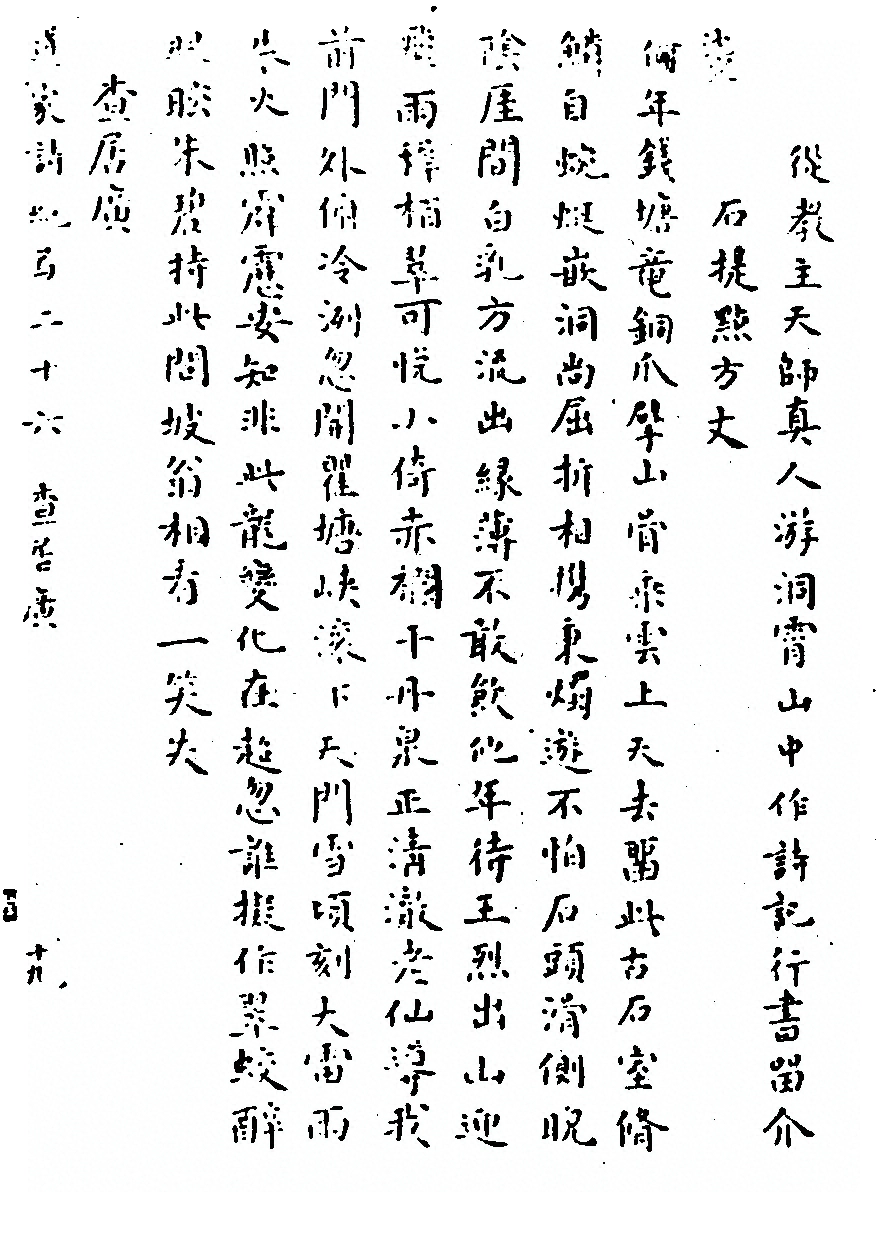 從教主天師真人游洞霄山中作詩記行書畱介
石提點方丈
何年錢塘竜銅爪擘山骨乘雲上天去畱此古石室脩
鱗自蜿蜓嵌洞尚屈折相携秉燭遊不怕石頭滑側睨
陰厓間白乳方流出緑薄不敢飲他年待王烈出山迎
雨稚梢草可悅小倚赤欄干丹泉正清澈老仙導我
前門外俯冷冽忽開瞿塘峽滚下天門雪頃刻大雷雨
火照霹靂安知非此龍變化在超忽誰擬作翠蛟醉
眼眩朱碧持此問坡翁相看一笑失
查居廣
道家詩紀弓二十六 查居廣 十九